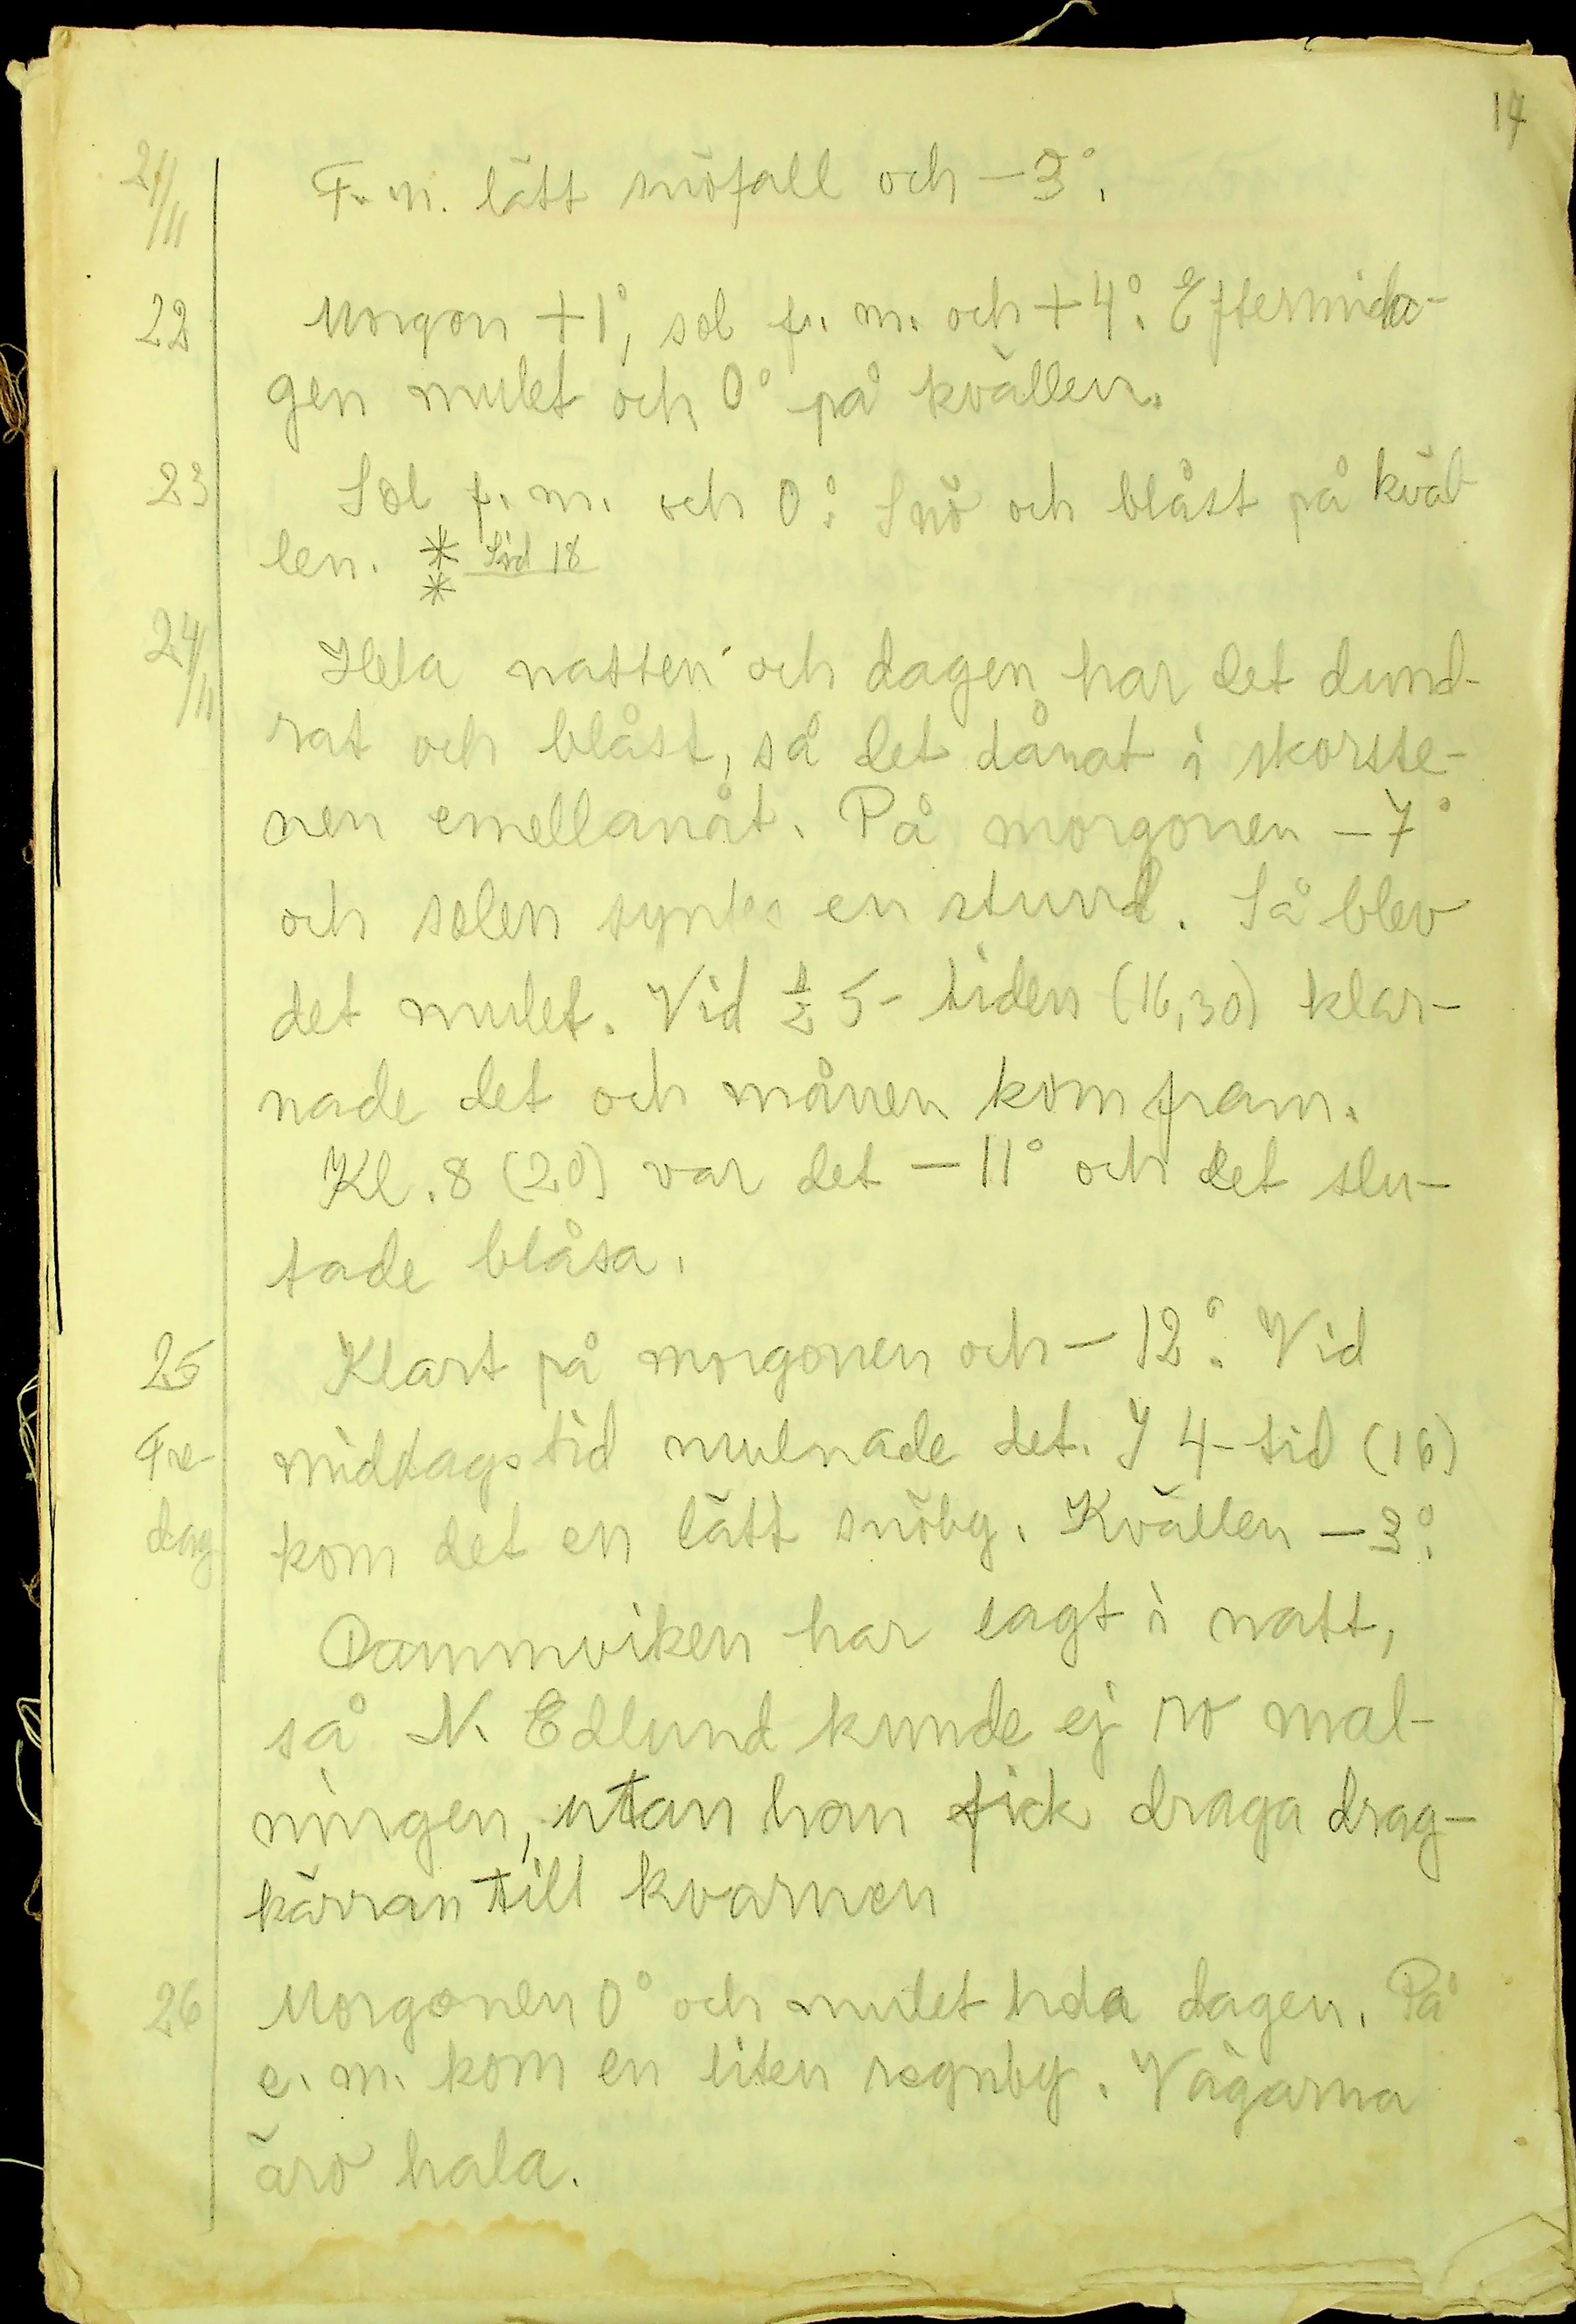 17
21/11 F. m. lätt snöfall och -3°.
22 Morgon +1°, sol f. m. och +4°. Eftermidda-
gen mulet och 0° på kvällen.
23 Sol f. m. och 0°. Snö och blåst på kväl-
len. * Sid 18
*
24/11 Hela natten och dagen har det dund-
rat och blåst, så det dånat i skorste-
nen emellanåt. På morgonen -7°
och solen syntes en stund. Så blev
det mulet. Vid ½ 5-tiden (16,30) klar-
nade det och månen kom fram.
Kl. 8 (20) var det -11° och det slu-
tade blåsa.
25 Klart på morgonen och -12°. Vid
Fre- middagstid mulnade det. I 4-tid (16)
dag kom det en lätt snöby. Kvällen -3°.
Dammviken har lagt i natt,
så N. Edlund kunde ej ro mal-
ningen, utan han fick draga drag-
kärran till kvarnen
26 Morgonen 0° och mulet hela dagen. På
e. m. kom en liten regnby. Vägarna
äro hala.